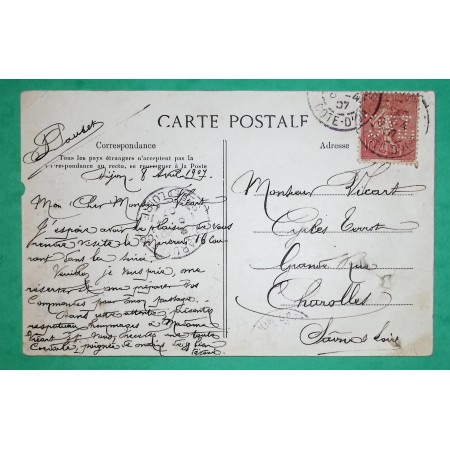 CARTE POSTALE
Correspondance
Tous les pays étrangers n'acceptent pas la
correspondance au recto, se renseigner à la Poste
Adresse
Dijon 8 Avril 1907
Mon Cher Monsieur Vicart
J'espère avoir le plaisir de vous
rendre visite le Mercredi 16 Cou
rant dans la soirée.
Veuillez je vous prie, me
réserver et me préparer vos
Commandes pour mon passage.
Dans cette attente, présentez
respectueux hommages à Madame
Vicart et vous recevez ma toute
Cordiale poignée de mains
Monsieur Vicart
Cycles Terrot
Grande Rue
Charolles
Saône et Loire
07
COTE-D'OR